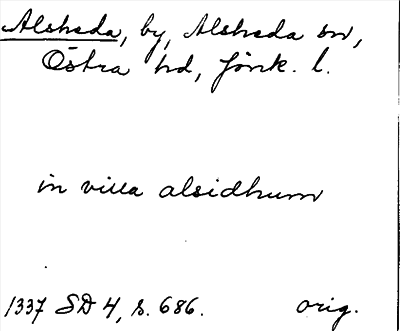 Alsheda, by, Alsheda sn,
Östra hd, Jönk. l.
in villa alsidhum
1337 SD 4, s. 686. orig.